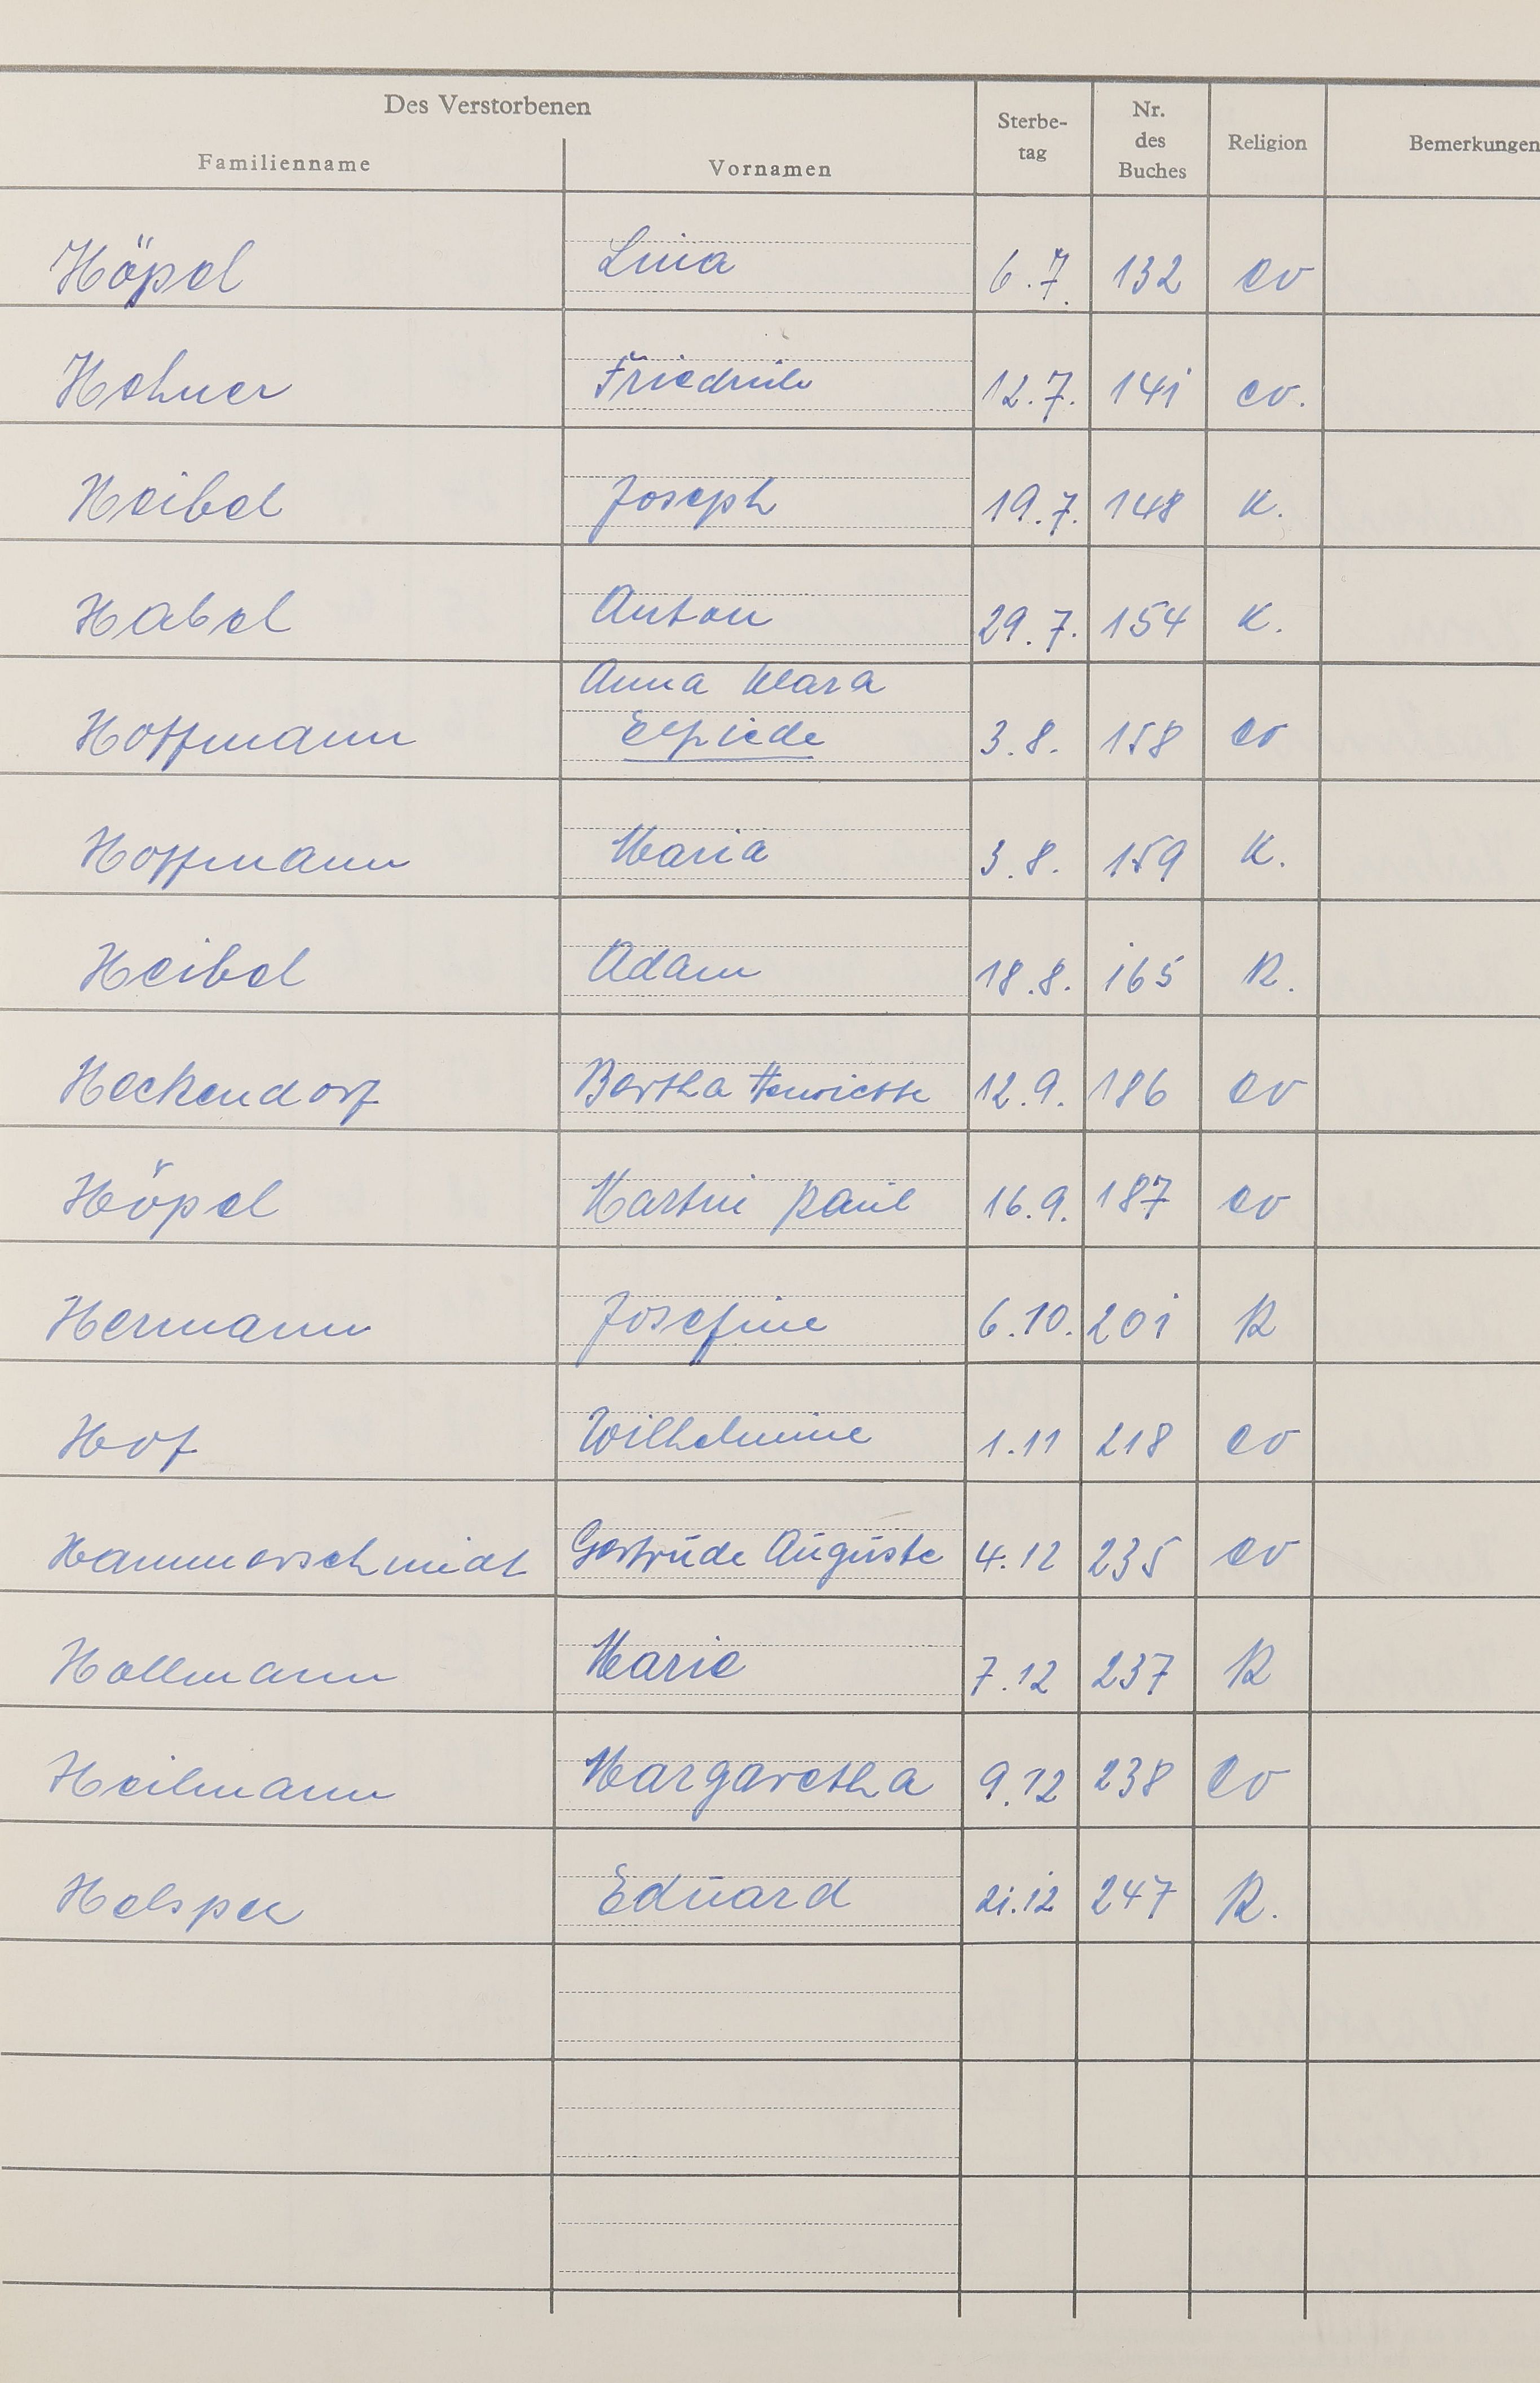 Des Verstorbenen
Familienname
Vornamen
Sterbe-
tag
Nr.
des
Buches
Religion
Bemerkungen
Höpel Lina 6.7. 132 ev
Hehner Friedrich 12.7. 141 ev.
Heibel Joseph 19.7. 148 K.
Habel Anton 29.7. 154 K.
Anna Klara
Hoffmann Elfriede 3.8. 158 ev
Hoffmann Maria 3.8. 159 K.
Heibel Adam 18.8. 165 K.
Heckendorf Bertha Henriette 12.9. 186 ev
Höpel Martin Paul 16.9. 187 ev
Hermann Josefine 6.10. 201 K
Hof Wilhelmine 1.11 218 ev
Hammerschmidt Gertrude Auguste 4.12 235 ev
Hollmann Marie 7.12 237 K
Heilmann Margaretha 9.12 238 ev
Helsper Eduard 21.12 247 K.